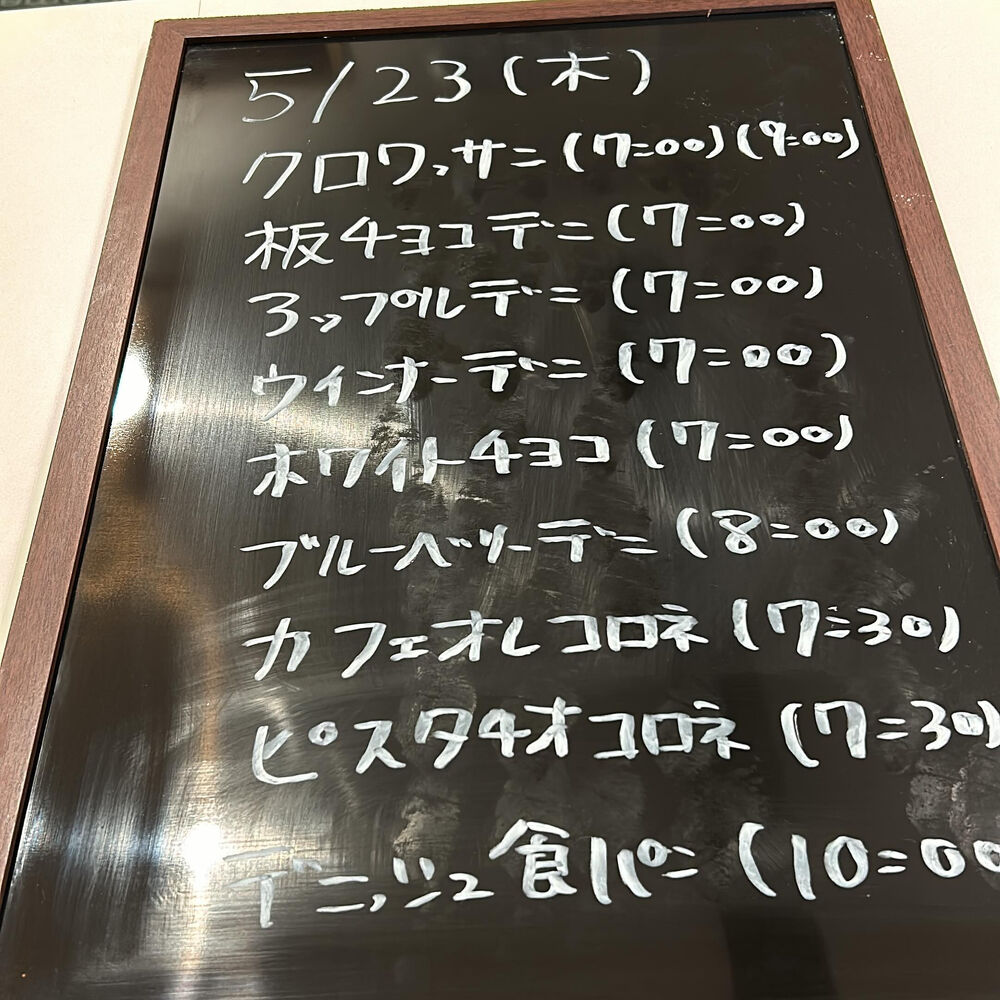 5/23(木)
クロワッサン(7:00)(9:00)
板チョコデニ(7:00)
アップルデニ(7:00)
ウィンナーデニ(7:00)
ホワイトチョコ(7:00)
ブルーベリーデニ(8:00)
カフェオレコロネ(7:30)
ピスタチオコロネ(7:30)
デニッシュ食パン(10:00